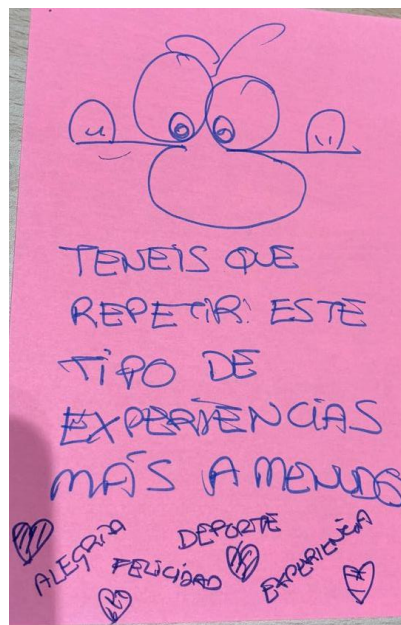 TENEIS QUE
REPETIR ESTE
TIPO DE
EXPERIENCIAS
MÁS A MENUDO
ALEGRIA
FELICIDAD
DEPORTE
EXPERIENCIA